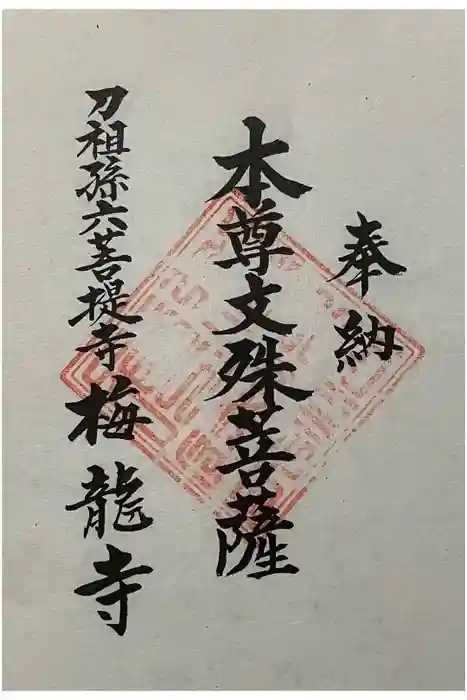 奉納
本尊文殊菩薩
刀祖孫六菩提寺梅龍寺